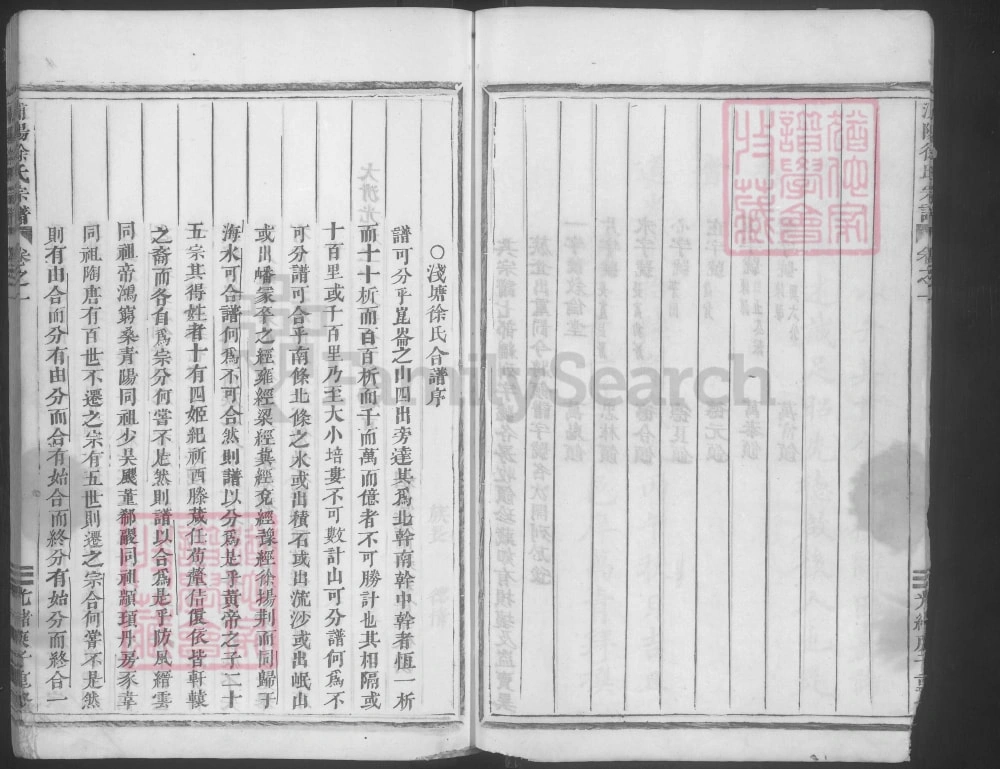 ○淺塘徐氏合譜序
譜可分乎崑崙之山四出旁達其爲北幹南幹中幹者恆一析
而十十析而百百析而千而萬而億者不可勝計也其相隔或
十百里或千百里乃至大小培塿不可數計山可分譜何爲不
可分譜可合乎南條北條之水或出積石或出流沙或出岷山
或出嶓冢至之經雍經梁經冀經兗經豫經徐揚荆而同歸于
海水可合譜何爲不可合然則譜以分爲是乎黃帝之子二十
五宗其得姓者十有四姬祀祈酉滕葴任荀釐佶儇依皆軒轅
之裔而各自爲宗分何嘗不是然則譜以合爲是乎防風縉雲
同祖帝鴻窮桑青陽同祖少昊颺董鄒禝同祖顓頊丹房豕韋
同祖陶唐有百世不遷之宗有五世則遷之宗合何嘗不是然
則有由合而分有由分而合有始合而終分有始分而終合一
陽徐氏宗譜 卷之一 光緒庚子重修
FamilySearch